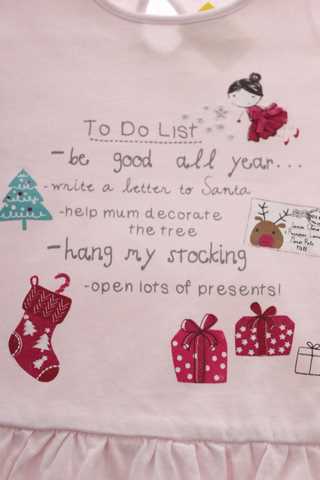 To Do List
-be good all year...
-write a letter to Santa
-help mum decorate
the tree
-hang my stocking
-open lots of presents!